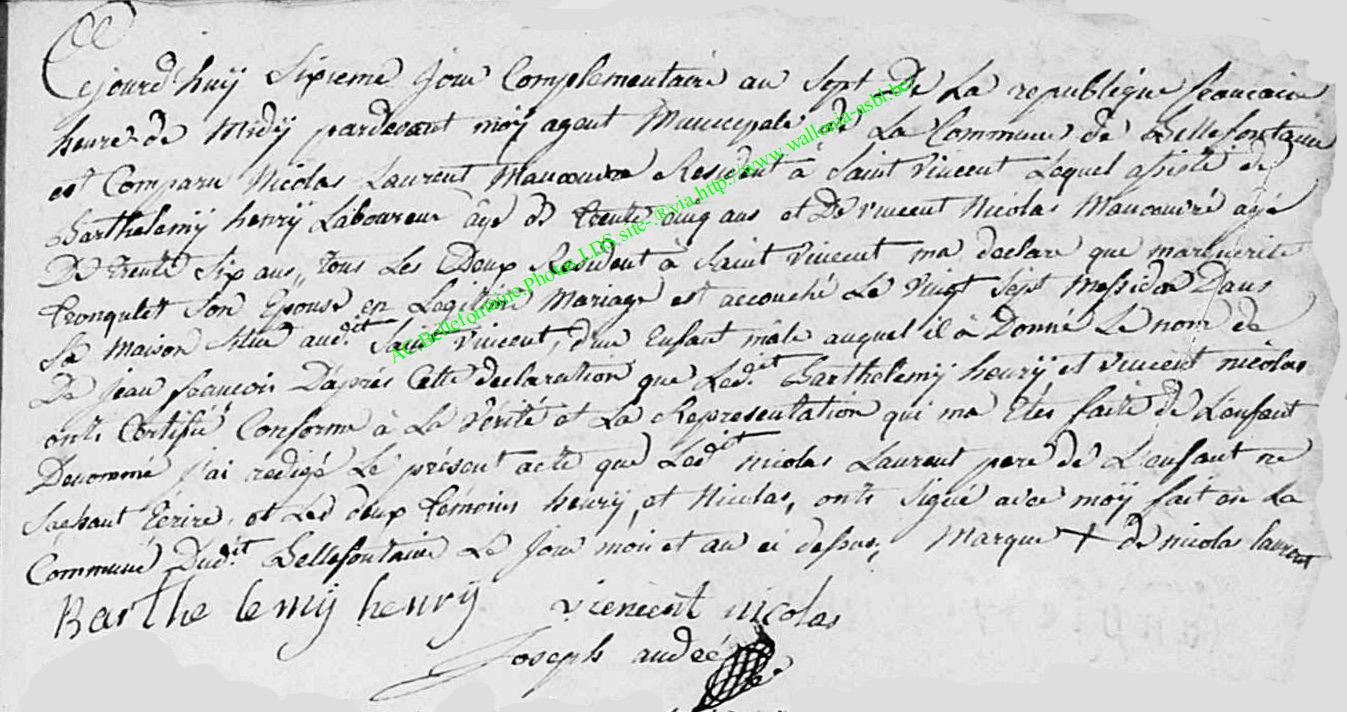 Cejourd'huÿ Sixieme jour Complementaire an Sept de La republique francaise
heure de Midÿ pardevant moÿ agent Municipale de La Commune de Bellefontaine
est Comparu Nicolas Laurent Resident à Saint Vincent Lequel assisté de
Barthelemÿ henrÿ Laboureur âgé de trente cinq ans et De Vincent Nicolas agé
De trente Six ans, tous Les Deux Resident à Saint Vincent ma declaré que marguerite
Son Epouse en Legitime Mariage est accouché Le Vingt Sept Messidor Dans
Sa Maison Situé aud.it Saint Vincent, d'un Enfant mâle auquel il à Donné Le nom de
De jean francois D'aprés Cette declaration que Led.it Barthelemÿ henrÿ et Vincent nicolas
onts Certifié Conforme à La Vérité et La Representation qui ma Etés faite de L'enfant
Denommé j'ai redigé Le présent acte que Led.it Nicolas Laurent pere de L'enfant ne
Sachant Ecrire, et Les deux témoins henrÿ, et Nicolas, onts Signé avec moÿ fait en La
Commune Dud.it Bellefontaine Le Jour mois et an ci dessus, Marque + de nicolas laurent
Barthe lemÿ henrÿ viencent nicolas
Joseph andré
AC.Bellefontaine.Photos LDS site- .via.http://www.wallonia-asbl.be/